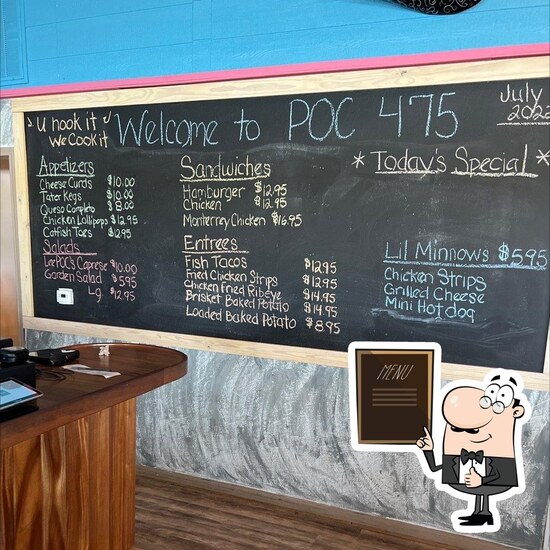 U hook it
We Cook it
Welcome to POC 475
July
202
Appetizers
Cheese Curds $10.00
Tater Kegs $10.00
Queso Completo $8.00
Chicken Lollipops $12.95
Catfish Toes $12.95
Salads
LeePOC's Caprese $10.00
Garden Salad $5.95
Lg. $12.95
Sandwiches
Hamburger $12.95
Chicken $12.95
Monterrey Chicken $16.95
Entrees
Fish Tacos $12.95
Fried Chicken Strips $12.95
Chicken Fried Ribeye $14.95
Brisket Baked Potato $14.95
Loaded Baked Potato $8.95
* Today's Special *
Lil Minnows $5.95
Chicken Strips
Grilled Cheese
Mini Hotdog
MENU